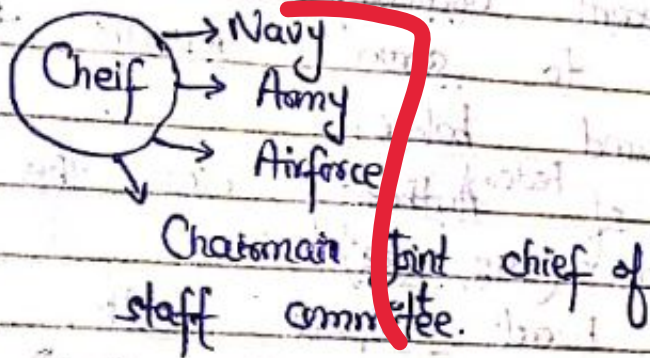 Navy
Cheif
Army
Airforce
Chairman Joint chief of
staff committee.